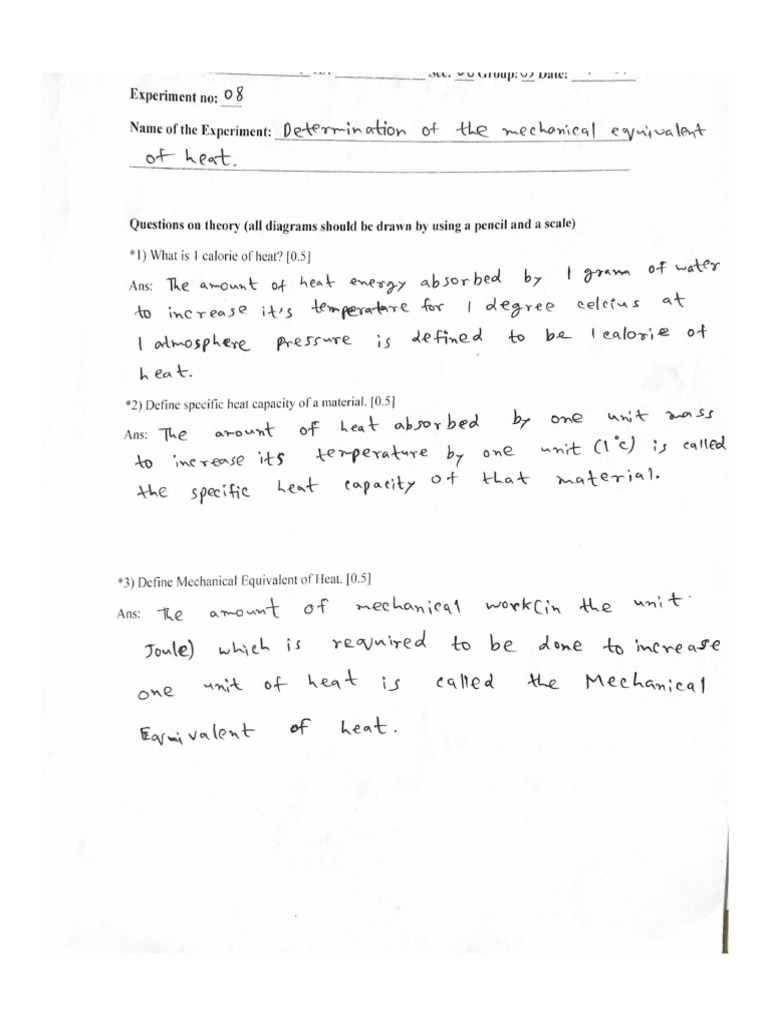 Sec: 06 Group: 05 Date:
Experiment no: 08
Name of the Experiment: Determination of the mechanical equivalent
of heat.
Questions on theory (all diagrams should be drawn by using a pencil and a scale)
*1) What is 1 calorie of heat? [0.5]
Ans: The amount of heat energy absorbed by 1 gram of water
to increase it's temperature for 1 degree celcius at
1 atmosphere pressure is defined to be 1 calorie of
heat.
*2) Define specific heat capacity of a material. [0.5]
Ans: The amount of heat absorbed by one unit mass
to increase its temperature by one unit (1°c) is called
the specific heat capacity of that material.
*3) Define Mechanical Equivalent of Heat. [0.5]
Ans: The amount of mechanical work(in the unit
Joule) which is required to be done to increase
one unit of heat is called the Mechanical
Equivalent of heat.